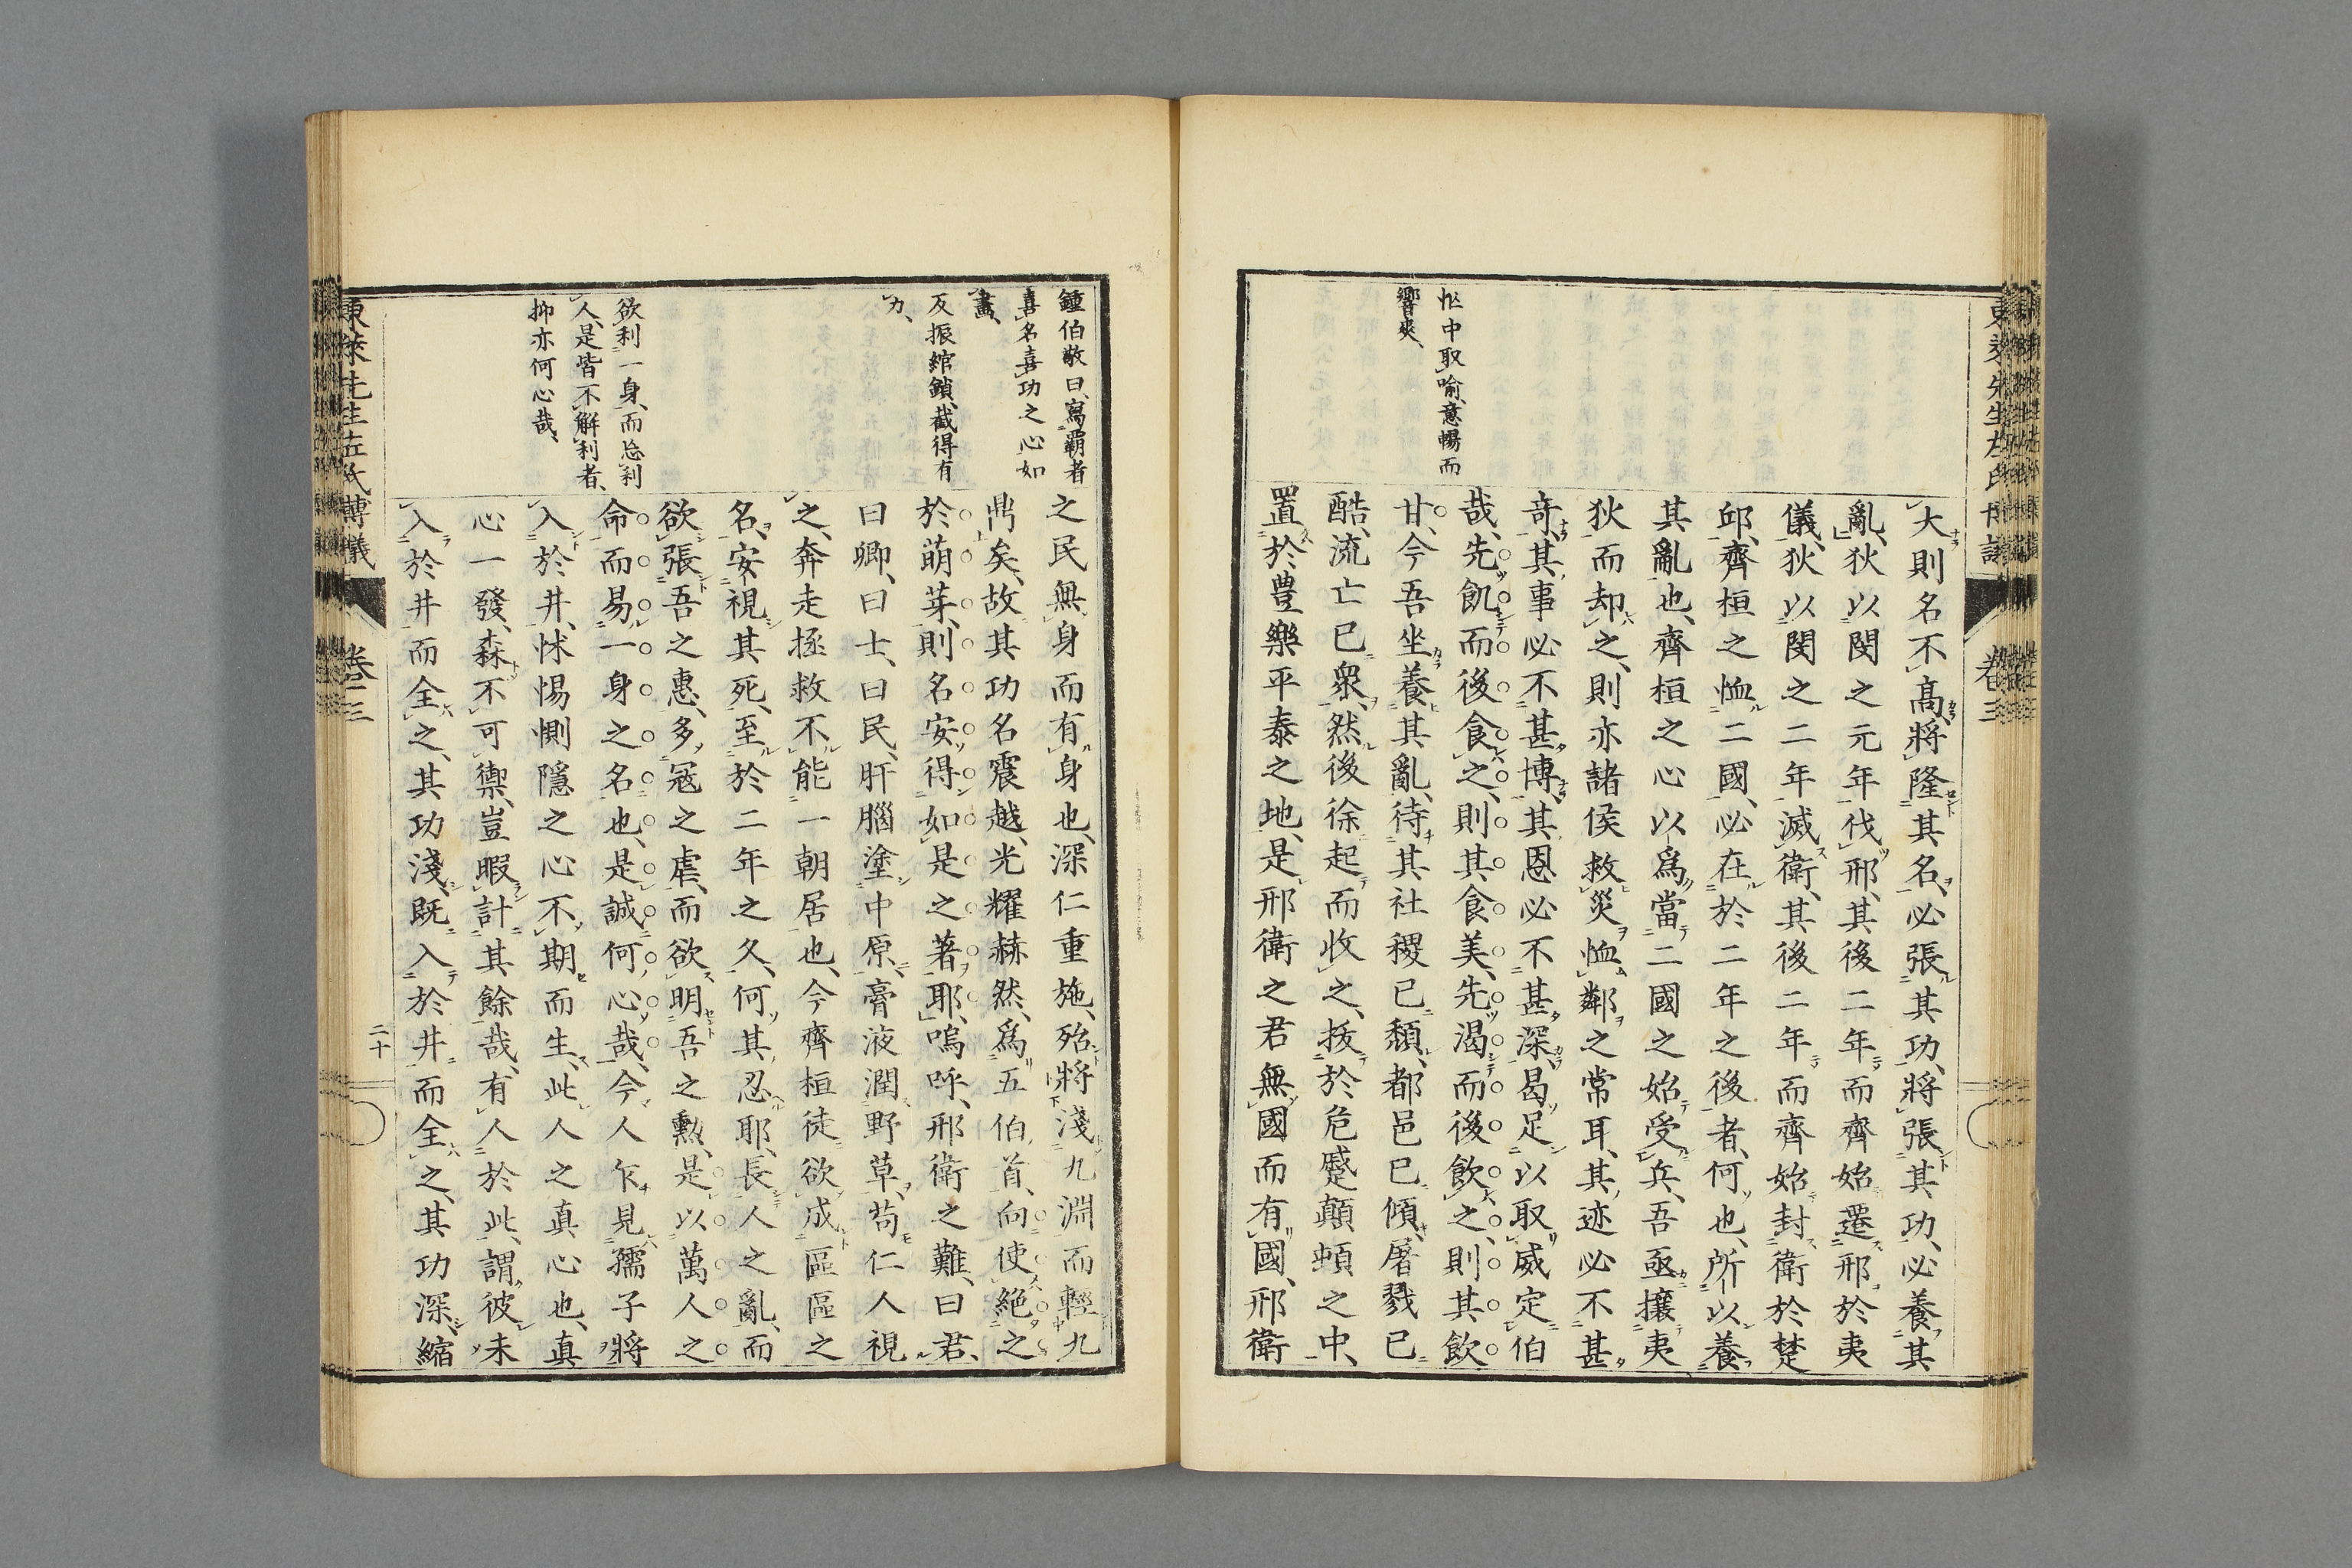 東萊先生左氏博議
卷三
大則名不高將隆其名、必張其功、將張其功、必養其
亂、狄以閔之元年伐邢、其後二年而齊始遷邢於夷
儀、狄以閔之二年滅衛、其後二年而齊始封衛於楚
邱、齊桓之恤二國、必在於二年之後者、何也、所以養
其亂也、齊桓之心以爲當二國之始受兵、吾亟攘夷
狄而却之、則亦諸侯救災恤鄰之常耳、其迹必不甚
奇、其事必不甚博、其恩必不甚深、曷足以取威定伯
哉、先飢而後食之、則其食美、先渴而後飲之、則其飲
甘、今吾坐養其亂、待其社稷已頹、都邑已傾、屠戮已
酷、流亡已衆、然後徐起而收之、拔於危蹙顛頓之中、
置於豊樂平泰之地、是邢衛之君無國而有國、邢衛
忙中取喻、意暢而
響爽、
之民無身而有身也、深仁重施、殆將淺九淵而輕九
鼎矣、故其功名震越、光耀赫然、爲五伯首、向使絶之
於萌芽、則名安得如是之著耶、嗚呼、邢衛之難、曰君、
曰卿、曰士、曰民、肝腦塗中原、膏液潤野草、苟仁人視
之、奔走拯救不能一朝居也、今齊桓徒欲成區區之
名、安視其死、至於二年之久、何其忍耶、長人之亂、而
欲張吾之惠、多冦之虐、而欲明吾之勲、是以萬人之
命而易一身之名也、是誠何心哉、今人乍見孺子將
入於井、怵惕惻隱之心不期而生、此人之真心也、真
心一發、森不可禦、豈暇計其餘哉、有人於此、謂彼未
入於井而全之、其功淺、既入於井而全之、其功深、縮
鍾伯敬曰、寫覇者
喜名喜功之心如
畫、
反振綰鎖、截得有
力、
欲利一身、而忘利
人、是皆不解利者、
抑亦何心哉、
東萊先生左氏博議
卷三
二十